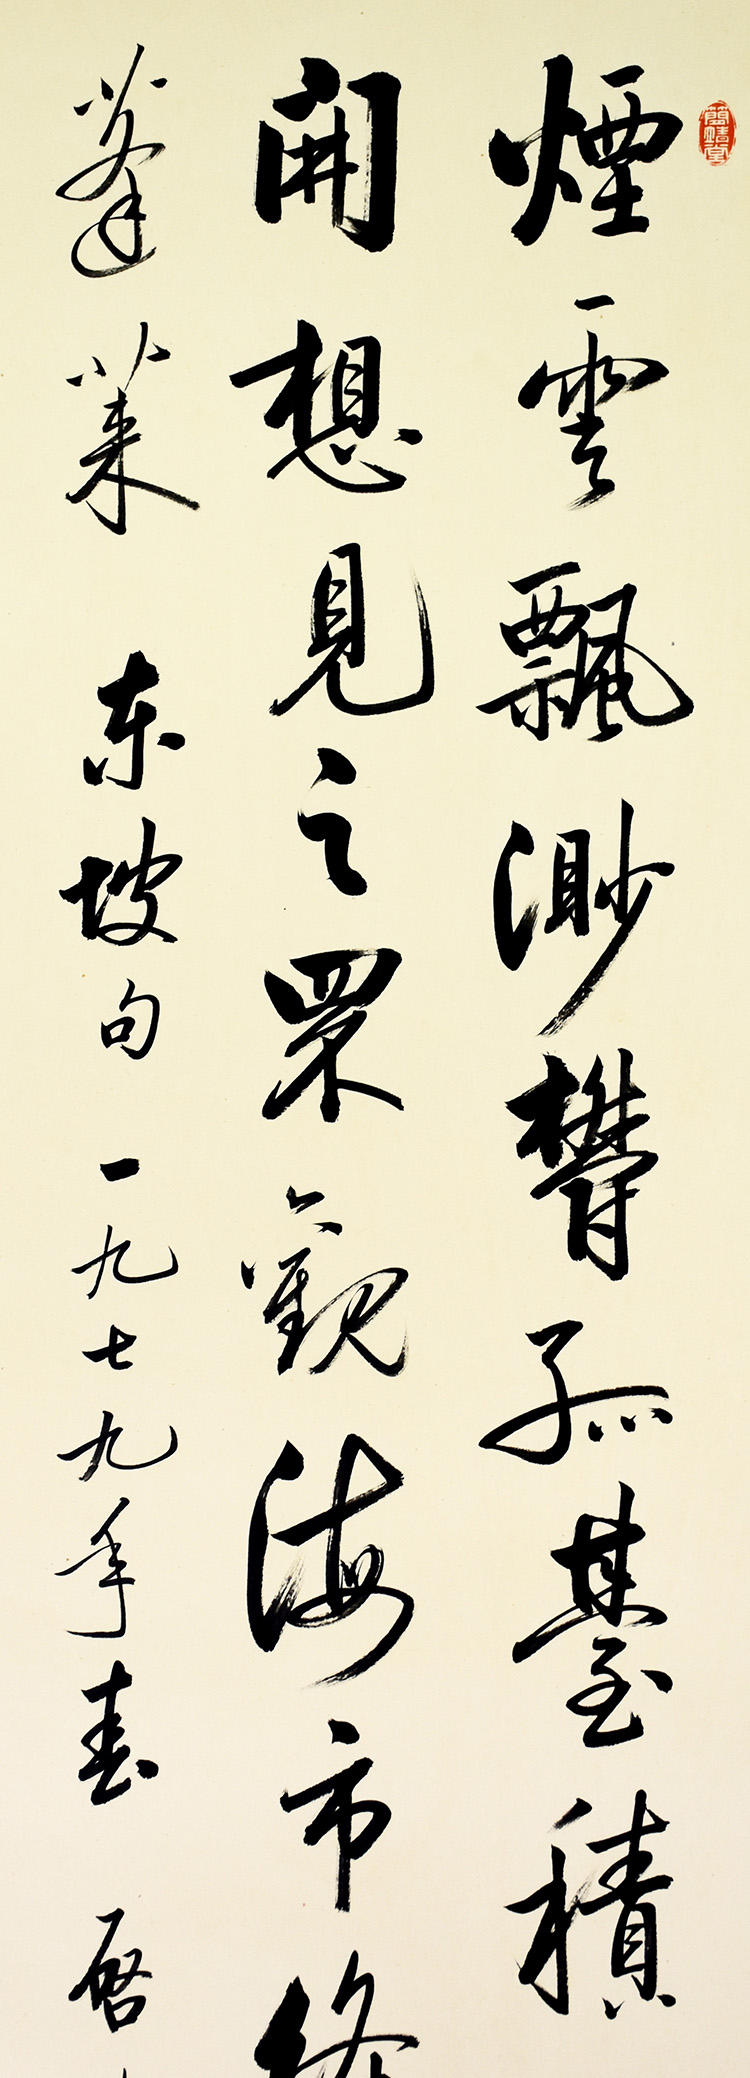 簡靖堂
煙雲飄渺鬱孤臺積
開想見之罘觀海市
蓬莱 东坡句 一九七九年春 啓